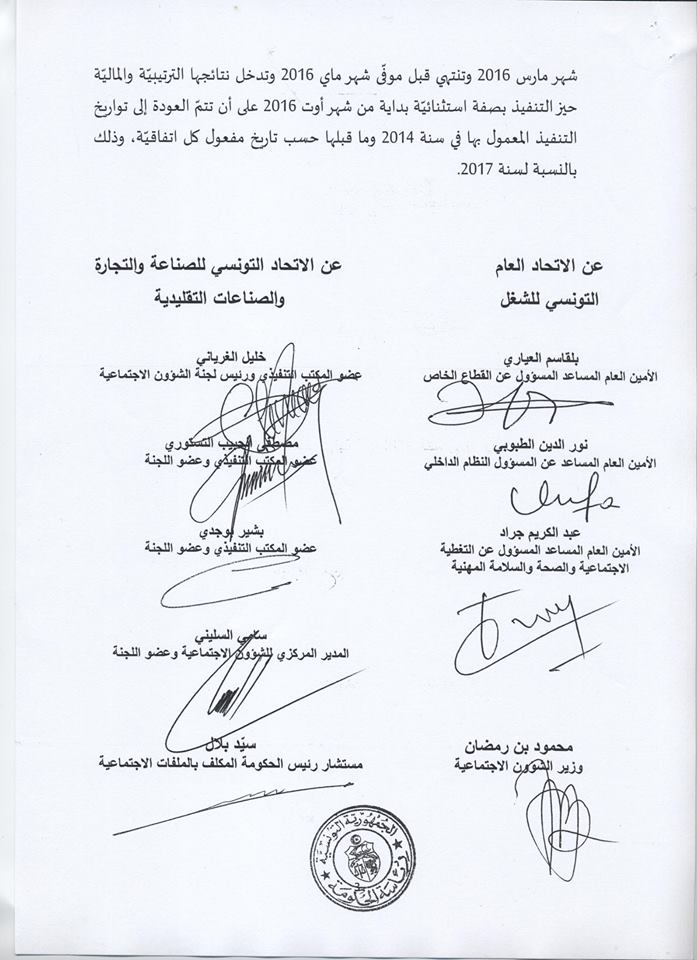 شهر مارس 2016 وتنتهي قبل موفّى شهر ماي 2016 وتدخل نتائجها الترتيبيّة والماليّة
حيز التنفيذ بصفة استثنائيّة بداية من شهر أوت 2016 على أن تتمّ العودة إلى تواريخ
التنفيذ المعمول بها في سنة 2014 وما قبلها حسب تاريخ مفعول كل اتفاقيّة، وذلك
بالنسبة لسنة 2017.
عن الاتحاد العام
التونسي للشغل
بلقاسم العياري
الأمين العام المساعد المسؤول عن القطاع الخاص
نور الدين الطبوبي
الأمين العام المساعد عن المسؤول النظام الداخلي
عبد الكريم جراد
الأمين العام المساعد المسؤول عن التغطية
الاجتماعية والصحة والسلامة المهنية
محمود بن رمضان
وزير الشؤون الاجتماعية
عن الاتحاد التونسي للصناعة والتجارة
والصناعات التقليدية
خليل الغرياني
عضو المكتب التنفيذي ورئيس لجنة الشؤون الاجتماعية
مصطفى الحبيب التستوري
عضو المكتب التنفيذي وعضو اللجنة
بشير بوجدي
عضو المكتب التنفيذي وعضو اللجنة
سامي السليني
المدير المركزي للشؤون الاجتماعية وعضو اللجنة
سيّد بلال
مستشار رئيس الحكومة المكلف بالملفات الاجتماعية
الجمهورية التونسية
رئاسة الحكومة